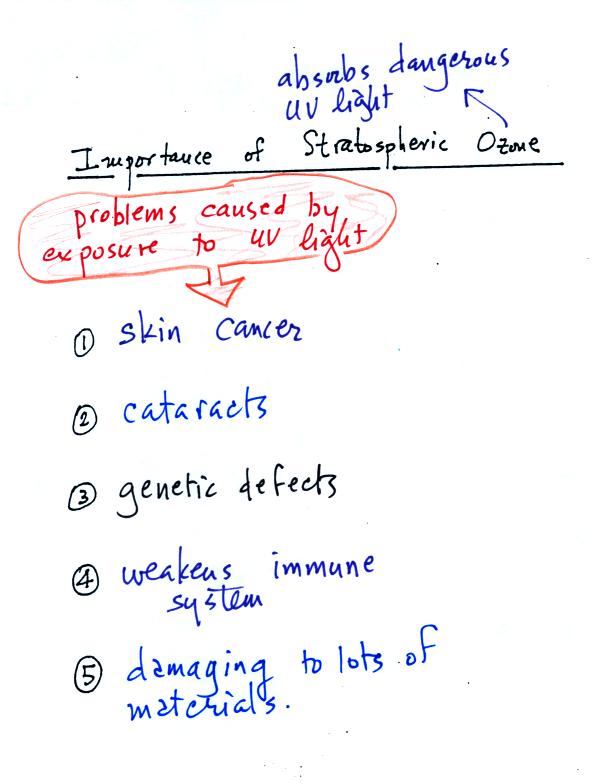 absorbs dangerous
UV light
Importance of Stratospheric Ozone
problems caused by
exposure to UV light
① skin cancer
② cataracts
③ genetic defects
④ weakens immune
system
⑤ damaging to lots of
materials.